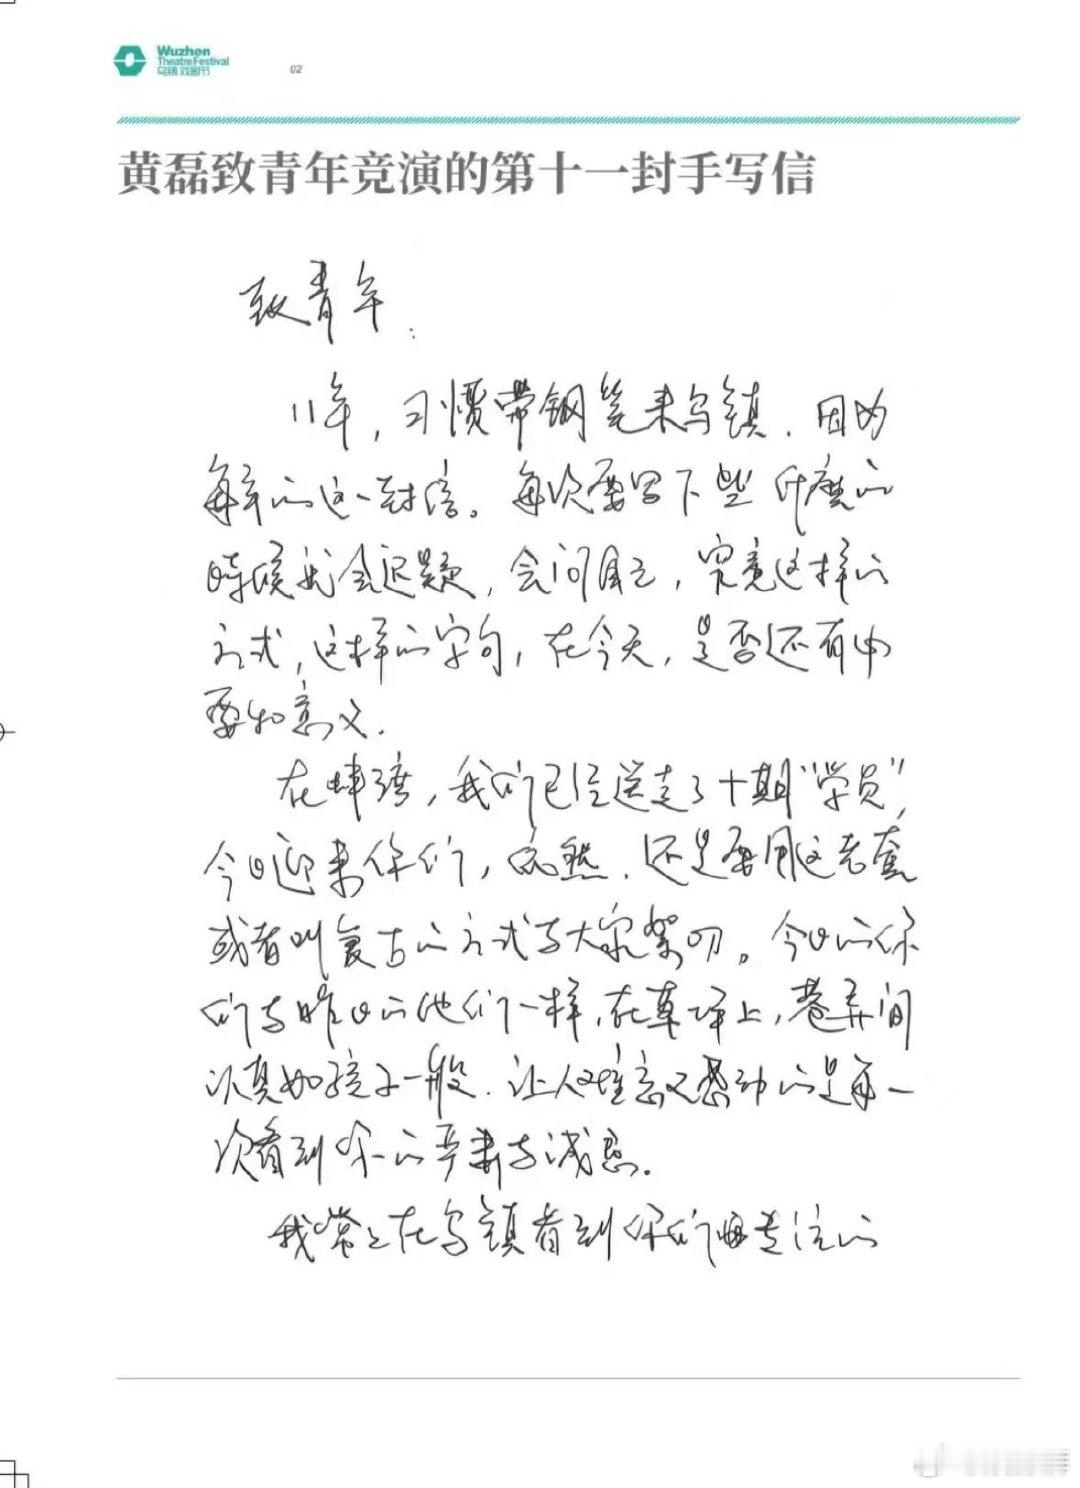 Wuzhen
Theatre Festival
乌镇戏剧节
02
黄磊致青年竞演的第十一封手写信
致青年：
11年，习惯带钢笔来乌镇.因为
每年的这一封信。每次要写下些什麼的
時候我会迟疑，会问自己，究竟这样的
方式，这样的字句，在今天，是否还有必
要和意义.
在蚌湾，我们已经送走了十期“学员”，
今日迎来你们，依然.还是要用这老套
或者叫复古的方式与大家絮叨。今日的你
们与昨日的他们一样,在草坪上，巷弄间
认真如孩子一般.让人难忘又感动的是每一
次看到你们的严肃与诚恳。
我常常在乌镇看到你们专注的